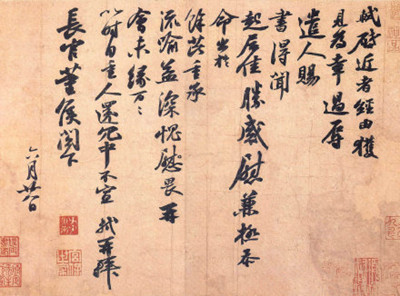 軾啟近者經由獲
見為幸過辱
遣人賜
書得聞
起居佳勝感慰兼極忝
命出於
餘芘重承
流喻益深愧畏再
會未緣万万
以時自重人還冗中不宣 軾再拜
長官董侯閣下
六月廿八日